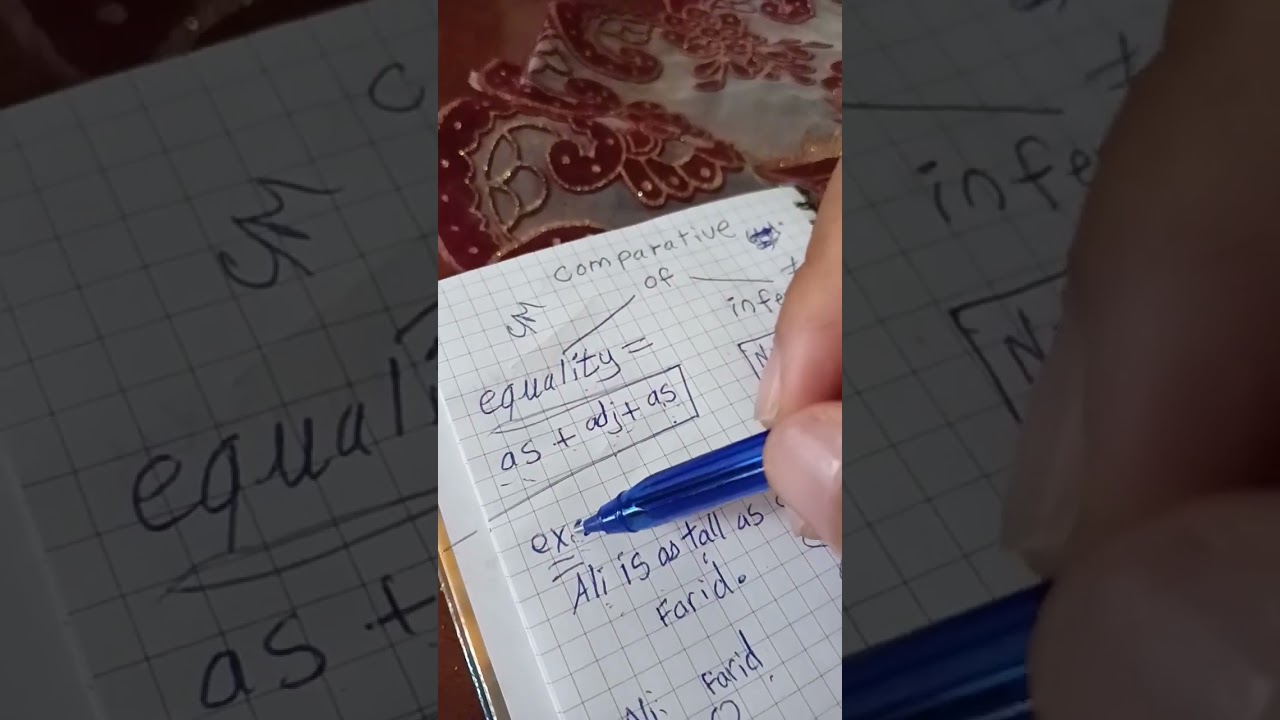 comparative
of
equality =
as + adj + as
ex:
Ali is as tall as
Farid.
Farid
Ali